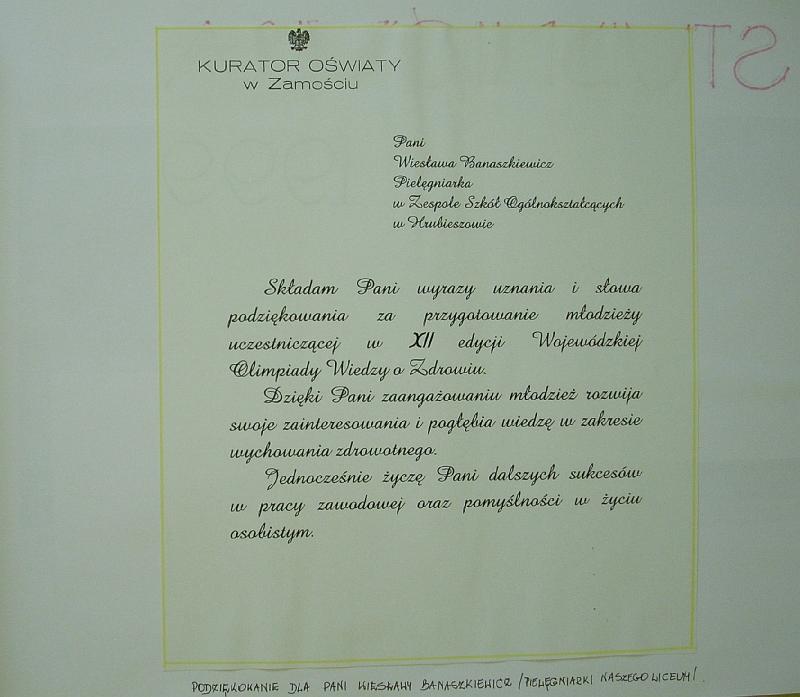 KURATOR OŚWIATY
w Zamościu
Pani
Wiesława Banaszkiewicz
Pielęgniarka
w Zespole Szkół Ogólnokształcących
w Hrubieszowie
Składam Pani wyrazy uznania i słowa
podziękowania za przygotowanie młodzieży
uczestniczącej w XII edycji Wojewódzkiej
Olimpiady Wiedzy o Zdrowiu.
Dzięki Pani zaangażowaniu młodzież rozwija
swoje zainteresowania i pogłębia wiedzę w zakresie
wychowania zdrowotnego.
Jednocześnie życzę Pani dalszych sukcesów
w pracy zawodowej oraz pomyślności w życiu
osobistym.
PODZIĘKOWANIE DLA PANI WIESŁAWY BANASZKIEWICZ /PIELĘGNIARKI NASZEGO LICEUM/.